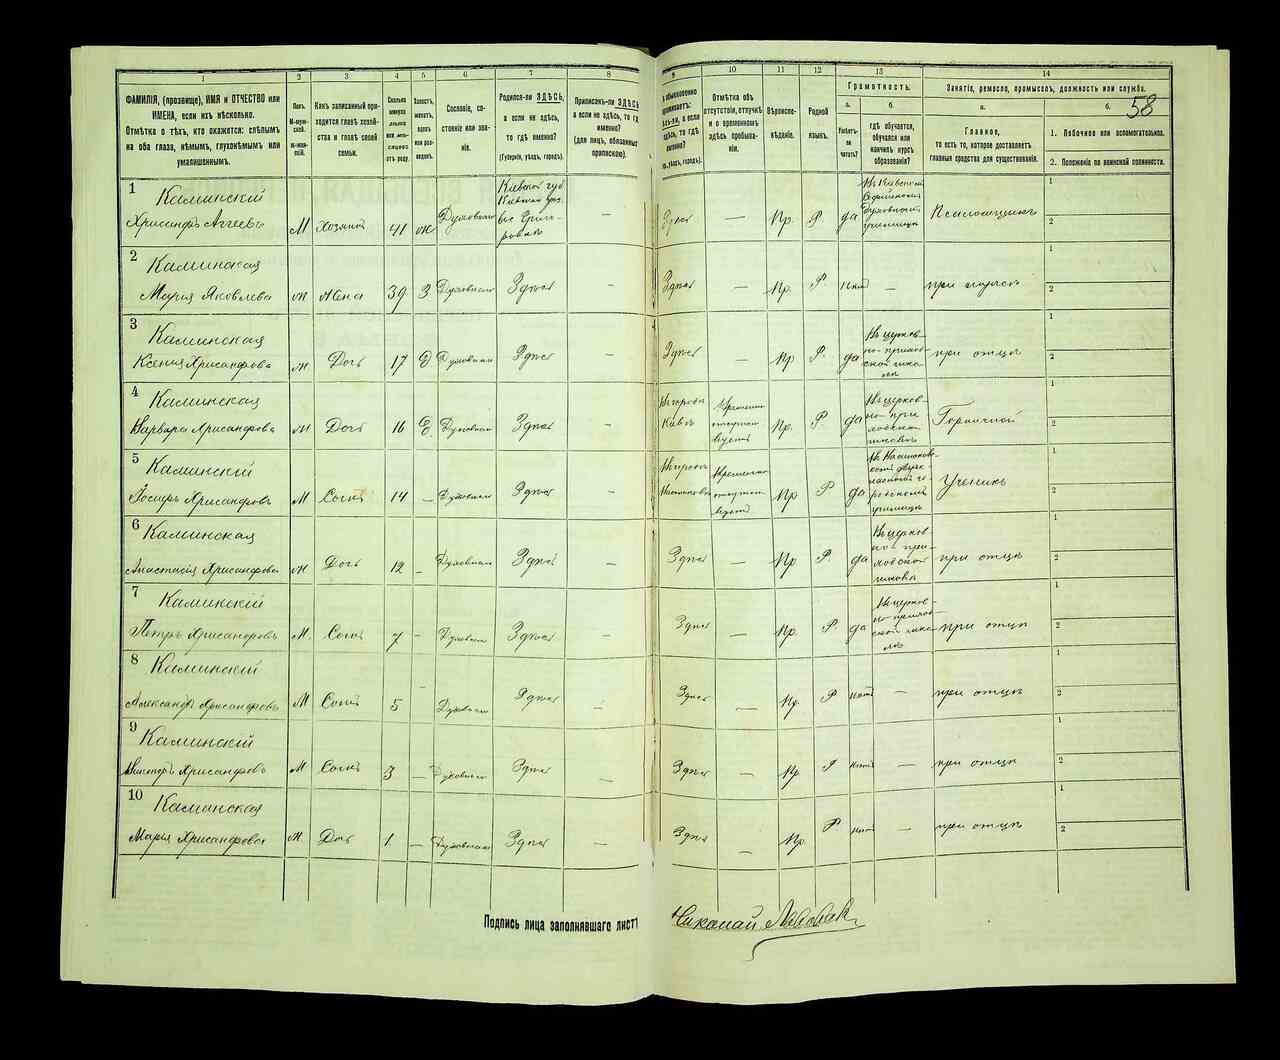 1 2 3 4 5 6 7 8 9 10 11 12 13 14
58
ФАМИЛІЯ, (прозвище), ИМЯ и ОТЧЕСТВО или
ИМЕНА, если ихъ нѣсколько.
Отмѣтка о тѣхъ, кто окажется: слѣпымъ
на оба глаза, нѣмымъ, глухонѣмымъ или
умалишеннымъ.
Полъ.
М-муж-
ской.
Ж-жен-
скій.
Какъ записанный при-
ходится главѣ хозяй-
ства и главѣ своей
семьи.
Сколько
минуло
лѣтъ
или мѣ-
сяцевъ
отъ роду.
Холостъ,
женатъ,
вдовъ
или раз-
веденъ.
Сословіе, со-
стояніе или зва-
ніе.
Родился-ли ЗДѢСЬ,
а если не здѣсь,
то гдѣ именно?
(Губернія, уѣздъ, городъ).
Приписанъ-ли ЗДѢСЬ
а если не здѣсь, то гдѣ
именно?
(для лицъ, обязанныхъ
припискою).
обыкновенно
проживаетъ:
здѣсь-ли, а если
не здѣсь, то гдѣ
именно?
уѣздъ, городъ).
Отмѣтка объ
отсутствіи, отлучкѣ
и о временномъ
здѣсь пребыва-
ніи.
Вѣроиспо-
вѣданіе.
Родной
языкъ.
Грамотность.
а. б.
Умѣетъ-
ли
читать?
гдѣ обучается,
обучался или
кончилъ курсъ
образованія?
Занятіе, ремесло, промыселъ, должность или служба.
а. б.
Главное,
то есть то, которое доставляетъ
главныя средства для существованія.
1. Побочное или вспомогательное.
2. Положеніе по воинской повинности.
1 Каминскій
Хрисанфъ Аггеевъ М Хозяинъ 41 ж Духовнаго
Кіевской губ
Кіевскаго
— Здѣсь — Пр. Р. да
Въ Кіевской
Софійской
духовномъ
училищѣ
Псаломщикъ
1
2
2 Каминская
Марія Яковлева ж Жена 39 З Духовнаго Здѣсь — Здѣсь — Пр. Р нѣтъ — при мужѣ
1
2
3 Каминская
Ксенія Хрисанфова ж. Дочь 17 Д Духовнаго Здѣсь — Здѣсь — Пр Р. да
Въ церков-
но-приход-
ской шко-
лѣ
при отцѣ
1
2
4 Каминская
Варвара Хрисанфова ж Дочь 16 Духовнаго Здѣсь —
Въ городѣ
Кіевѣ
Временно
Пр. Р. да
Въ церков-
но-при
ходской
школѣ
Горничной
1
2
5 Каминскій
Іосифъ Хрисанфовъ М Сынъ 14 — Духовнаго Здѣсь —
Въ городѣ
Временно
Пр Р да
городскомъ
училищѣ
Ученикъ
1
2
6 Каминская
Анастасія Хрисанфова ж Дочь 12 — Духовнаго Здѣсь — Здѣсь — Пр. Р. да
Въ церков
но при-
ходской
школѣ
при отцѣ
1
2
7 Каминскій
Петръ Хрисанфовъ М. Сынъ 7 — Духовнаго Здѣсь — Здѣсь — Пр. Р. да
Въ церков-
но-приход-
ской шко-
лѣ
при отцѣ
1
2
8 Каминскій
Александръ Хрисанфовъ М Сынъ 5 — Духовнаго Здѣсь — Здѣсь — Пр. Р нѣтъ — при отцѣ
1
2
9 Каминскій
Викторъ Хрисанфовъ М Сынъ 3 — Духовнаго Здѣсь — Здѣсь — Пр. Р нѣтъ — при отцѣ
1
2
10 Каминская
Марія Хрисанфова ж. Дочь 1 — Духовнаго Здѣсь — Здѣсь — Пр. Р нѣтъ — при отцѣ
1
2
Подпись лица заполнявшаго листъ
Николай